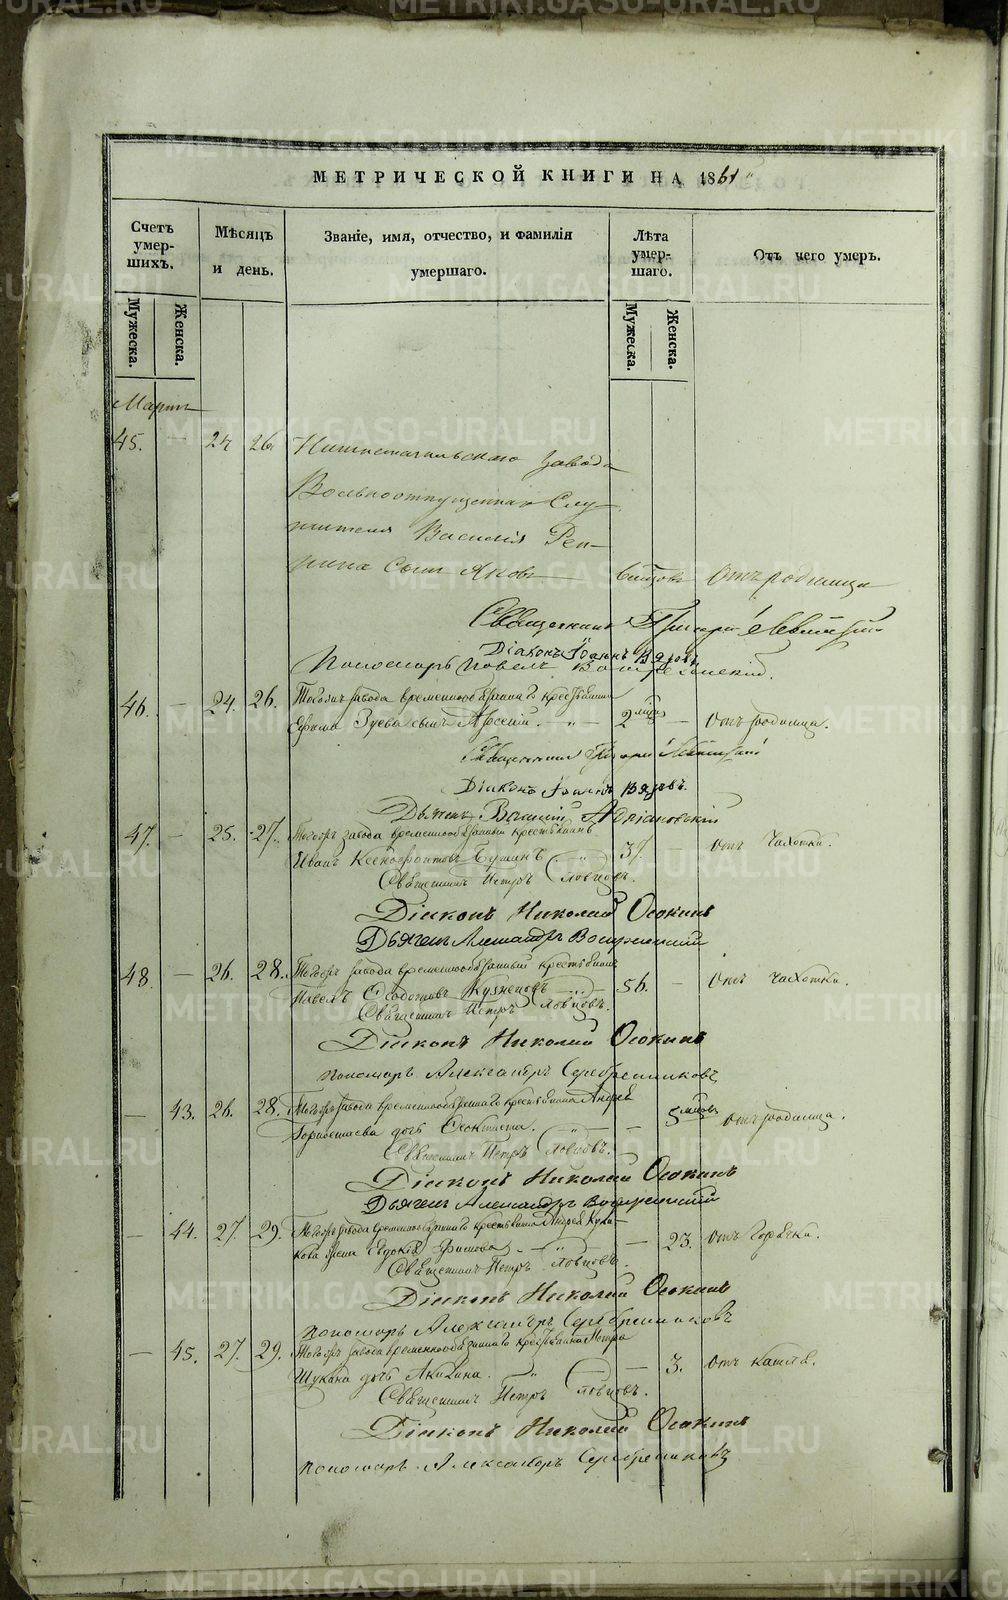 МЕТРИЧЕСКОЙ КНИГИ НА 1861
Счетъ умер-шихъ.
Мѣсяцъ и день.
Званіе, имя, отчество, и фамилія умершаго.
Лѣта умер-шаго.
Отъ чего умеръ.
Мужеска. Женска.
Мужеска. Женска.
Мартъ
45. — 24 26. Нижнетагильскаго завода
Вольноотпущеннаго Слу-
жителя Василія Реп-
нина сынъ Яковъ — Отъ родимца
Священникъ Григорій Левитскій
Діаконъ Іоаннъ Вяровъ
Пономарь Павелъ Воскресенскій.
46. — 24. 26. Тогожъ завода временнообязаннаго крестьянина
Ефима Зуева сынъ Арсеній. — 2 мѣс. — Отъ родимца.
Священникъ Григорій Левитскій
Діаконъ Іоаннъ Вяровъ.
Дьячекъ Василій Адріановскій
47. — 25. 27. Тогожъ завода временнообязанный крестьянинъ
Иванъ Ксенофонтовъ 37. — отъ чахотки.
Священникъ Петръ Ловцовъ.
Діаконъ Николай Осокинъ
Дьячекъ Александръ Воскресенскій
48. — 26. 28. Тогожъ завода временнообязанный крестьянинъ
Павелъ Ѳедотовъ Кузнецовъ — 56. — Отъ чахотки.
Священникъ Петръ Ловцовъ.
Діаконъ Николай Осокинъ
Пономарь Александръ Серебренниковъ
— 43. 26. 28. Тогожъ завода временнообязаннаго крестьянина Андрея
дочь Ѳеоктиста. — 5 мѣсяц. отъ родимца.
Священникъ Петръ Ловцовъ.
Діаконъ Николай Осокинъ
Дьячекъ Александръ Воскресенскій
— 44. 27. 29. Тогожъ завода временнообязаннаго крестьянина Андрея
жена Евдокія — 23. отъ Горячки.
Священникъ Петръ Ловцовъ.
Діаконъ Николай Осокинъ
Пономарь Александръ Серебренниковъ
— 45. 27. 29. Тогожъ завода временнообязаннаго крестьянина Петра
Шукина дочь Акилина. — 3. Отъ кашля.
Священникъ Петръ Ловцовъ.
Діаконъ Николай Осокинъ
Пономарь Александръ Серебренниковъ
METRIKI.GASO-URAL.RU